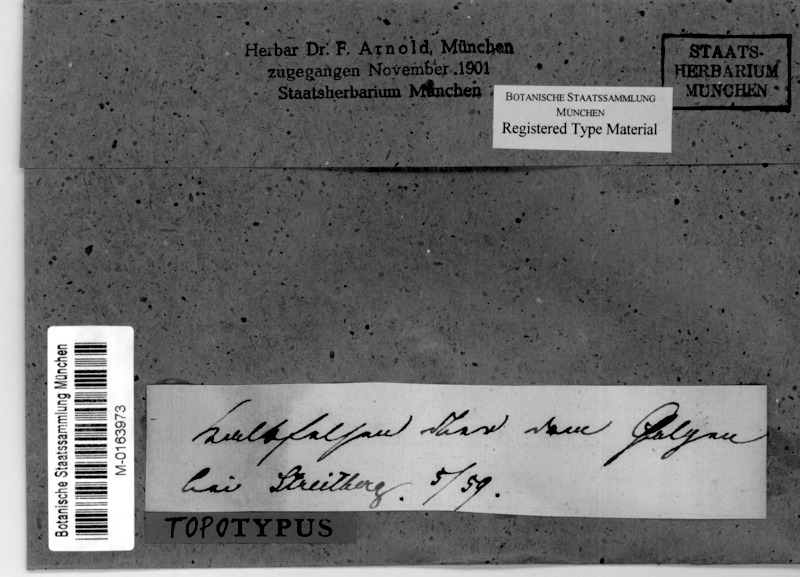 Herbar Dr. F. Arnold, München
zugegangen November 1901
Staatsherbarium München
STAATS-
HERBARIUM
MÜNCHEN
BOTANISCHE STAATSSAMMLUNG
MÜNCHEN
Registered Type Material
Botanische Staatssammlung München
M-0163973
Kalkfelsen über dem Galgen
bei Streitberg. 5/59.
TOPOTYPUS